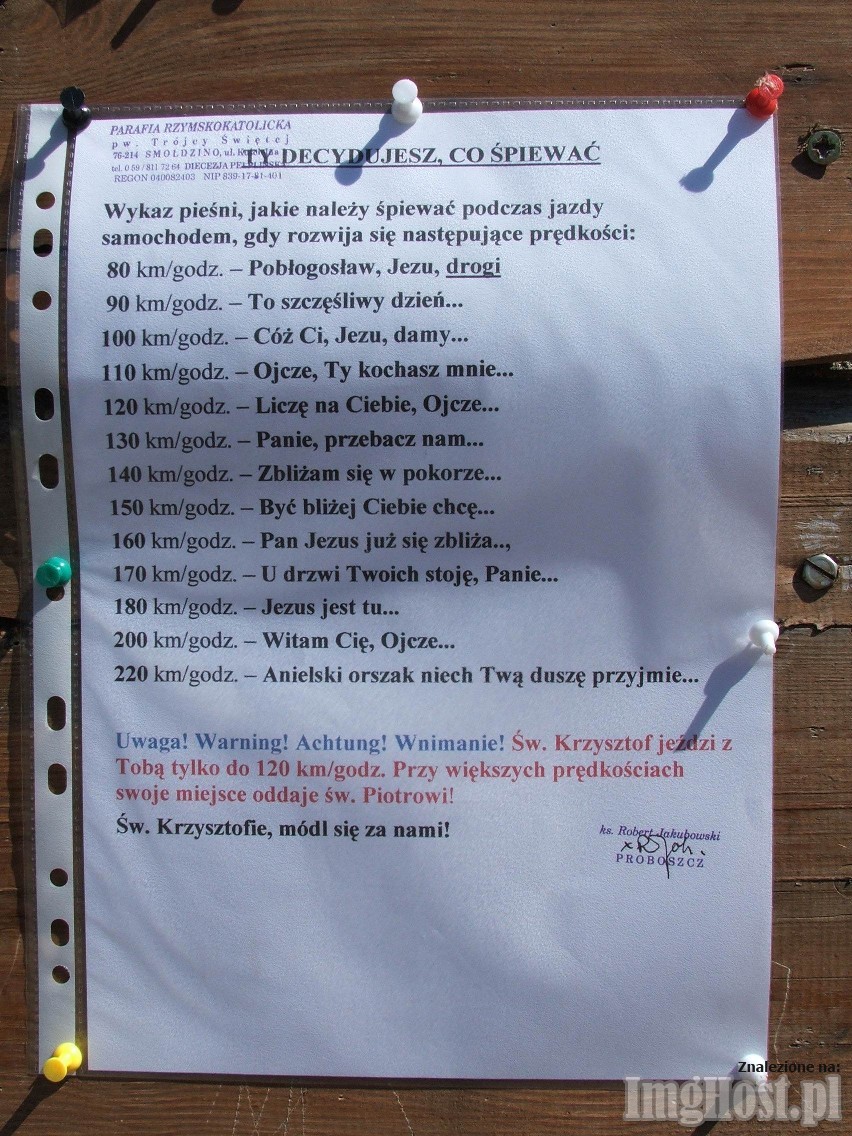 PARAFIA RZYMSKOKATOLICKA
pw. Trójcy Świętej
76-214 SMOŁDZINO, ul.
tel. 0 59 / 811 72 64 DIECEZJA
REGON 040082403 NIP 839-17-81-401
TY DECYDUJESZ, CO ŚPIEWAĆ
Wykaz pieśni, jakie należy śpiewać podczas jazdy
samochodem, gdy rozwija się następujące prędkości:
80 km/godz. – Pobłogosław, Jezu, drogi
90 km/godz. – To szczęśliwy dzień...
100 km/godz. – Cóż Ci, Jezu, damy...
110 km/godz. – Ojcze, Ty kochasz mnie...
120 km/godz. – Liczę na Ciebie, Ojcze...
130 km/godz. – Panie, przebacz nam...
140 km/godz. – Zbliżam się w pokorze...
150 km/godz. – Być bliżej Ciebie chcę...
160 km/godz. – Pan Jezus już się zbliża..,
170 km/godz. – U drzwi Twoich stoję, Panie...
180 km/godz. – Jezus jest tu...
200 km/godz. – Witam Cię, Ojcze...
220 km/godz. – Anielski orszak niech Twą duszę przyjmie...
Uwaga! Warning! Achtung! Wnimanie! Św. Krzysztof jeździ z
Tobą tylko do 120 km/godz. Przy większych prędkościach
swoje miejsce oddaje św. Piotrowi!
Św. Krzysztofie, módl się za nami!
ks. Robert Jakubowski
PROBOSZCZ
Znalezione na:
ImgHost.pl